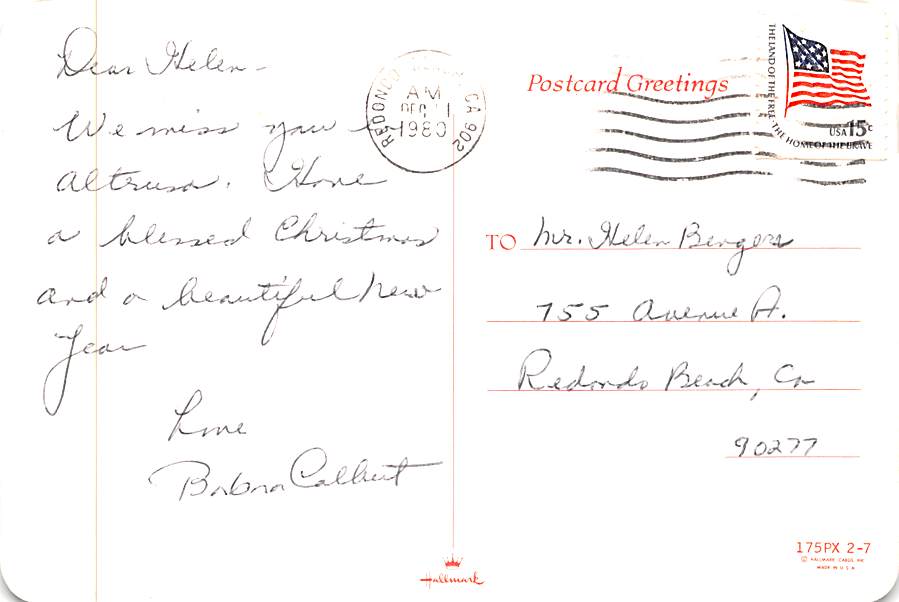 Dear Helen -
We miss you in
Altrusa. Have
a blessed Christmas
and a beautiful New
Year
Love
Barbara Calbert
REDONDO CA 902
AM
DEC 11
1980
Postcard Greetings
THE LAND OF THE FREE · THE HOME OF THE BRAVE
USA 15c
TO Mr. Helen
755 Avenue A.
Redondo Beach, Ca
90277
175PX 2-7
© HALLMARK CARDS, INC.
MADE IN U.S.A.
Hallmark